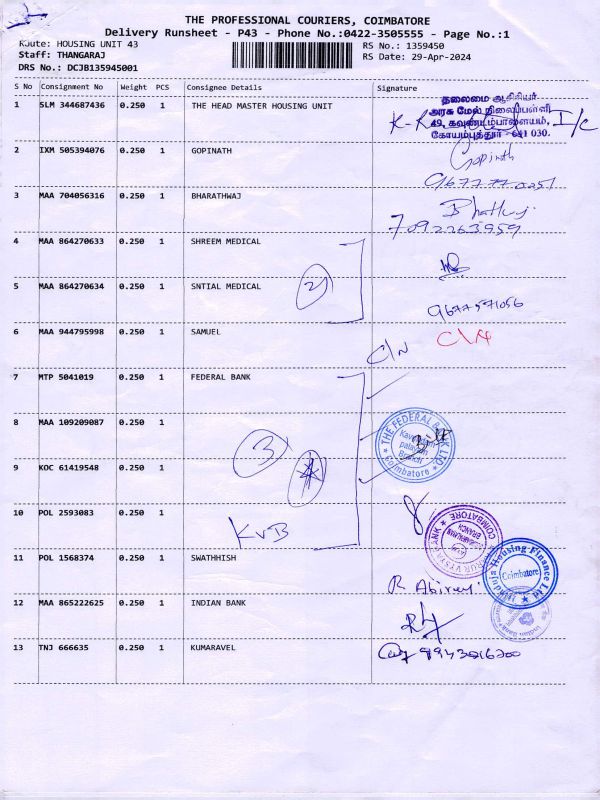 THE PROFESSIONAL COURIERS, COIMBATORE
Delivery Runsheet - P43 - Phone No.:0422-3505555 - Page No.:1
Route: HOUSING UNIT 43 RS No.: 1359450
Staff: THANGARAJ RS Date: 29-Apr-2024
DRS No.: DCJB135945001
S No Consignment No Weight PCS Consignee Details Signature
1 SLM 344687436 0.250 1 THE HEAD MASTER HOUSING UNIT
தலைமை ஆசிரியர்
அரசு மேல் நிலைப்பள்ளி
49, கவுண்டம்பாளையம்,
கோயம்புத்தூர் - 641 030.
I/c
2 IXM 505394076 0.250 1 GOPINATH Gopinath
9677770251
3 MAA 704056316 0.250 1 BHARATHWAJ
7092263959
4 MAA 864270633 0.250 1 SHREEM MEDICAL
5 MAA 864270634 0.250 1 SNTIAL MEDICAL 2
9677571056
6 MAA 944795998 0.250 1 SAMUEL C/N C/N
7 MTP 5041019 0.250 1 FEDERAL BANK
8 MAA 109209087 0.250 1
THE FEDERAL BANK LTD
Branch
Coimbatore
9 KOC 61419548 0.250 1 3
10 POL 2593083 0.250 1 KVB
COIMBATORE
BRANCH
11 POL 1568374 0.250 1 SWATHHISH
Hinduja Housing Finance Ltd
Coimbatore
12 MAA 865222625 0.250 1 INDIAN BANK
13 TNJ 666635 0.250 1 KUMARAVEL 9943016200